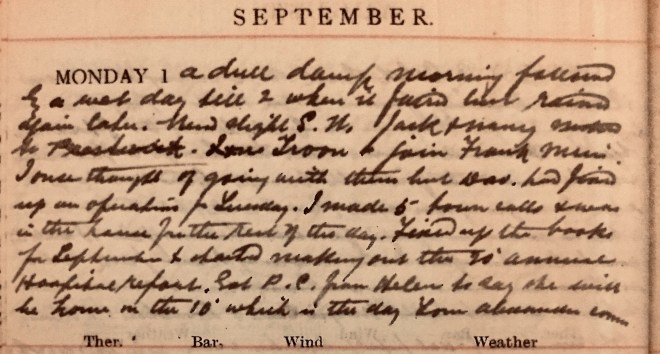 SEPTEMBER.
MONDAY 1 a dull damp morning followed
by a wet day till 2 when it faired but rained
again later. Wind slight S. W. Jack & Nancy motored
to Prestwick. Troon to join Frank Muir.
I once thought of going with them but Dav. had fixed
up an operation for Tuesday. I made 5 town calls & was
in the house for the rest of the day. Fixed up the books
for September & started making out the annual
Hospital report. Got P.C. from Helen to say she will
be home on the 10 which is the day Tom Alexander
Ther. Bar. Wind Weather